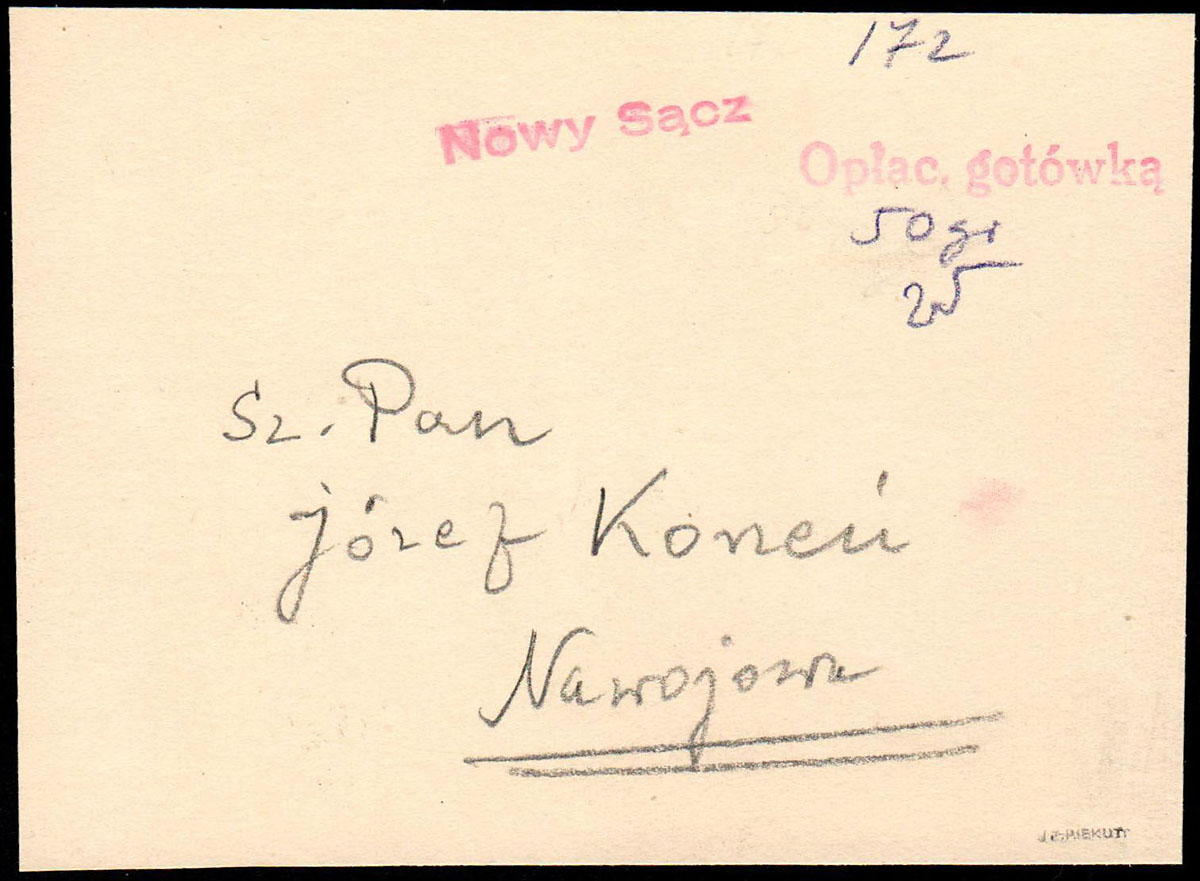 172
Nowy Sącz
Opłac. gotówką
50 gr
25
Sz. Pan
Józef Koneń
Nawojowa
PIEKUT